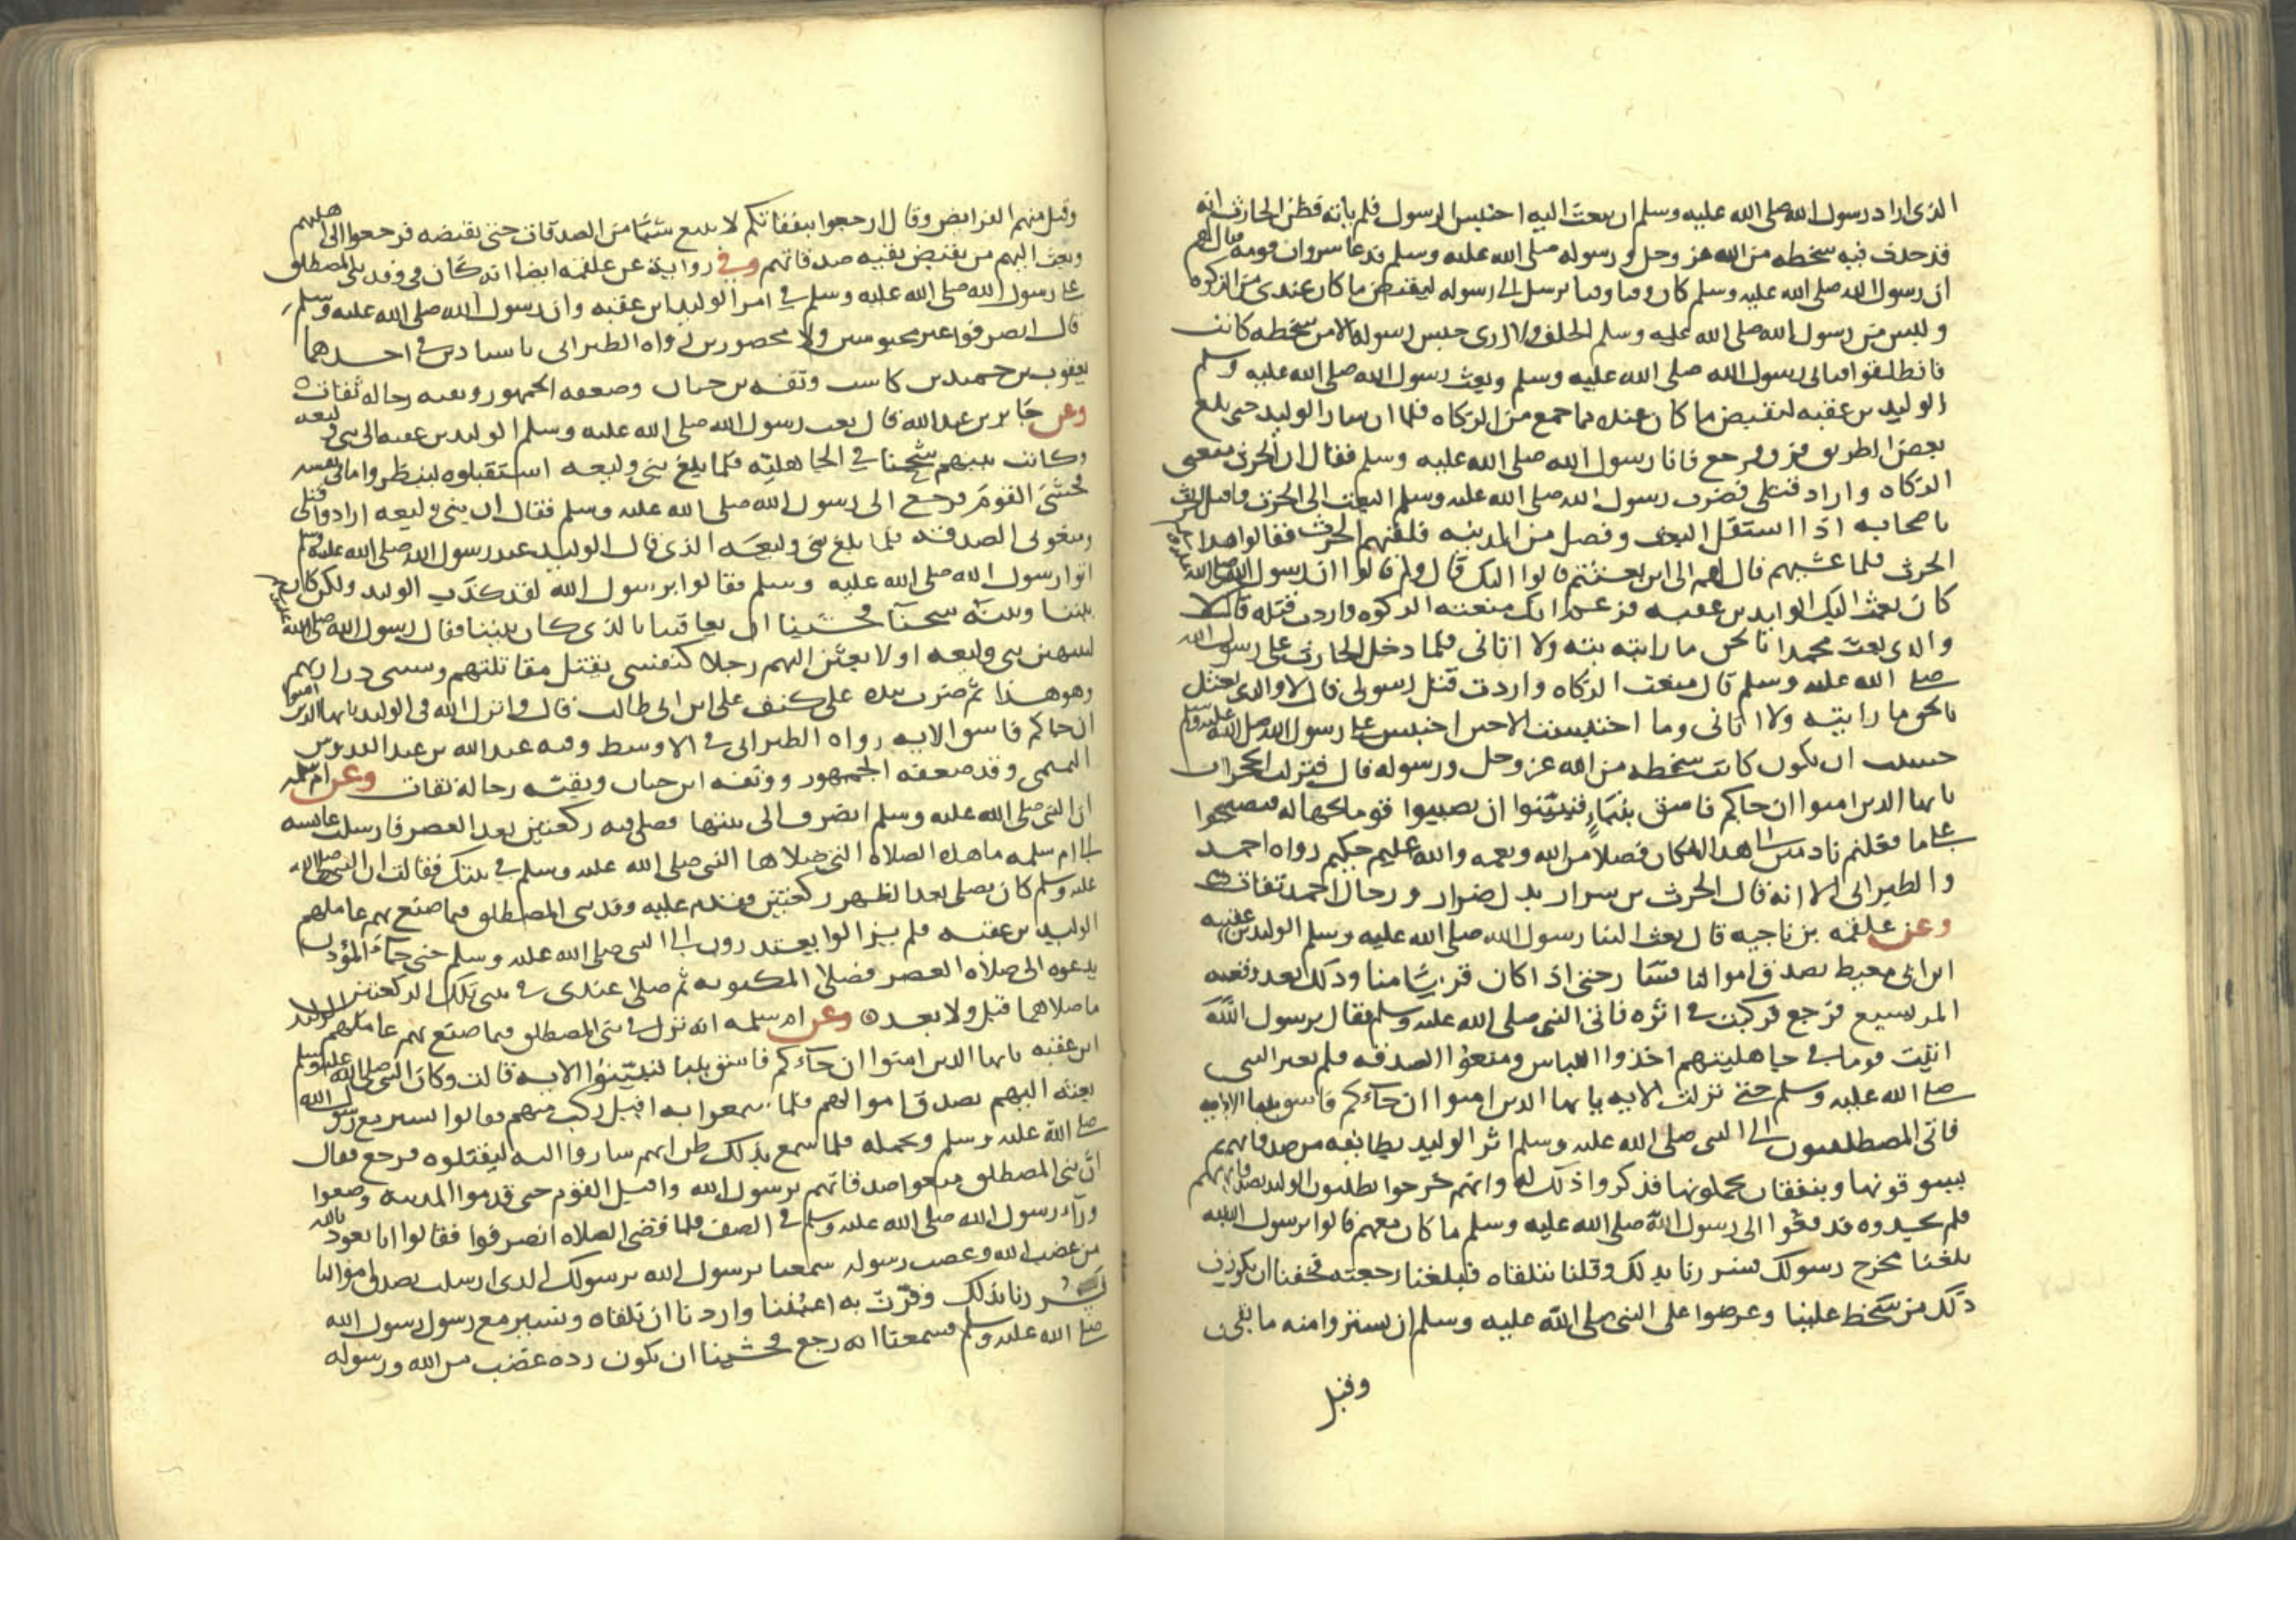 الذى اراد رسول الله صلى الله عليه وسلم ان يبعث اليه احتبس الرسول فلم ياته فظن الحارث انه
قد حدث فيه سخطه من الله عز وجل ورسوله صلى الله عليه وسلم فدعا سروات قومه فقال لهم
ان رسول الله صلى الله عليه وسلم كان وقت وقتا يرسل الى رسوله ليقبض ما كان عندى من الزكوة
وليس من رسول الله صلى الله عليه وسلم الخلف ولا ارى حبس رسوله الا من سخطه كانت
فانطلقوا فناتى رسول الله صلى الله عليه وسلم وبعث رسول الله صلى الله عليه وسلم
الوليد بن عقبه ليقبض ما كان عنده مما جمع من الزكاه فلما ان سار الوليد حتى بلغ
بعض الطريق فرق فرجع فاتا رسول الله صلى الله عليه وسلم فقال ان الحرث منعنى
الزكاه واراد قتلى فضرب رسول الله صلى الله عليه وسلم البعث الى الحرث فاقبل الحرث
باصحابه اذا استقبل البعث وفصل من المدينه فلقيهم الحرث فقالوا هذا
الحرث فلما غشيهم قال لهم الى اين بعثتم قالوا اليك قال ولم قالوا ان رسول الله صلى الله عليه وسلم
كان بعث اليك الوليد بن عقبه فزعم انك منعته الزكوه واردت قتله قال لا
والذى بعث محمدا بالحق ما رايته بته ولا اتانى فلما دخل الحارث على رسول الله
صلى الله عليه وسلم قال منعت الزكاه واردت قتل رسولى قال لا والذى بعثك
بالحق ما رايته ولا اتانى وما احتبست الا حين احتبس على رسول الله صلى الله عليه وسلم
خشيت ان يكون كانت سخطه من الله عز وجل ورسوله قال فنزلت الحجرات
يايها الذين امنوا ان جاكم فاسق بنباءٍ فتبيّنوا ان تصيبوا قوما بجهاله فتصبحوا
على ما فعلتم نادمين الى هذا المكان فضلا من الله ونعمه والله عليم حكيم رواه احمد
والطبرانى الا انه قال الحرث بن سرار بدل ضرار ورجال احمد ثقات
وعن علقمه بن ناجيه قال بعث الينا رسول الله صلى الله عليه وسلم الوليد بن عقبه
ابن ابى معيط يصدق اموالنا فسار حتى اذا كان قريبا منا وذلك بعد وقعه
المريسيع فرجع فركبت فى اثره فاتى النبى صلى الله عليه وسلم فقال يرسول الله
اتيت قوما فى جاهليتهم اخذوا اللباس ومنعوا الصدقه فلم يغير النبى
صلى الله عليه وسلم حتى نزلت الايه يايها الذين امنوا ان جاءكم فاسق بنبا الايه
فاتى المصطلقيون الى النبى صلى الله عليه وسلم اثر الوليد بطايفه من صدقاتهم
يسوقونها وبنفقات يحملونها فذكروا ذلك له وانهم خرجوا يطلبون الوليد بصدقاتهم
فلم يجدوه فدفعوا الى رسول الله صلى الله عليه وسلم ما كان معهم قالوا يرسول الله
بلغنا مخرج رسولك فسررنا بذلك وقلنا نتلقاه فبلغنا رجعته فخفنا ان يكون
ذلك من سخط علينا وعرضوا على النبى صلى الله عليه وسلم ان يشتروا منه ما بقى
وقبل
وقبل منهم الفرايض وقال ارجعوا بنفقاتكم لا نبيع شيئا من الصدقات حتى نقبضه فرجعوا الى اهليهم
وبعث اليهم من يقبض بقيه صدقاتهم وفى روايه عن علقمه ايضا انه كان فى وفد بنى المصطلق
على رسول الله صلى الله عليه وسلم فى امر الوليد بن عقبه وان رسول الله صلى الله عليه وسلم
قال انصرفوا غير محبوسين ولا محصورين رواه الطبرانى باسنادين فى احدهما
يعقوب بن حميد بن كاسب وثقه بن حبان وضعفه الجمهور وبقيه رجاله ثقات
وعن جابر بن عبد الله قال بعث رسول الله صلى الله عليه وسلم الوليد بن عقبه الى بنى وليعه
وكانت بينهم شحنا فى الجاهليه فلما بلغ بنى وليعه استقبلوه لينظروا ما فى نفسه
فخشى القوم فرجع الى رسول الله صلى الله عليه وسلم فقال ان بنى وليعه ارادوا قتلى
ومنعونى الصدقه فلما بلغ بنى وليعه الذى قال الوليد عند رسول الله صلى الله عليه وسلم
اتوا رسول الله صلى الله عليه وسلم فقالوا يرسول الله لقد كذب الوليد ولكن كان
بيننا وبينه شحنا فخشينا ان يعاقبنا بالذى كان بيننا فقال رسول الله صلى الله عليه وسلم
لينتهن بنى وليعه او لابعثن اليهم رجلا كنفسى يقتل مقاتلتهم ويسبى ذراريهم
وهو هذا ثم ضرب بيده على كتف على ابن ابى طالب قال وانزل الله فى الوليد يايها الذين امنوا
ان جاكم فاسق الايه رواه الطبرانى فى الاوسط وفيه عبد الله بن عبد القدوس
التميمى وقد ضعفه الجمهور ووثقه ابن حبان وبقيته رجاله ثقات وعن ام سلمه
ان النبى صلى الله عليه وسلم انصرف الى بيتها فصلى فيه ركعتين بعد العصر فارسلت عايشه
الى ام سلمه ما هذه الصلاه التى صلاها النبى صلى الله عليه وسلم فى بيتك فقالت ان النبى صلى الله
عليه وسلم كان يصلى بعد الظهر ركعتين فقدم عليه وفد بنى المصطلق فيما صنع بهم عاملهم
الوليد بن عقبه فلم يزالوا يعتذرون الى النبى صلى الله عليه وسلم حتى جاء المؤذن
يدعوه الى صلاه العصر فصلى المكتوبه ثم صلى عندى فى بيتى تلك الركعتين
ما صلاهما قبل ولا بعد وعن ام سلمه انه نزل فى بنى المصطلق فيما صنع بهم عاملهم الوليد
ابن عقبه يايها الذين امنوا ان جاءكم فاسق بنبا فتبيّنوا الايه قالت وكان النبى صلى الله عليه وسلم
بعثه اليهم يصدق اموالهم فلما سمعوا به اقبل ركب منهم فقالوا نسير مع رسول الله
صلى الله عليه وسلم ونحمله فلما سمع بذلك ظن انهم ساروا اليه ليقتلوه فرجع فقال
ان بنى المصطلق منعوا صدقاتهم يرسول الله واقبل القوم حتى قدموا المدينه وصفوا
وراء رسول الله صلى الله عليه وسلم فى الصف فلما قضى الصلاه انصرفوا فقالوا انا نعوذ بالله
من غضب الله وغضب رسوله سمعنا يرسول الله برسولك الذى ارسلت يصدق اموالنا
فسررنا بذلك وقرّت به اعيننا واردنا ان نلقاه ونسير مع رسول رسول الله
صلى الله عليه وسلم فسمعنا انه رجع فخشينا ان يكون رده غضب من الله ورسوله